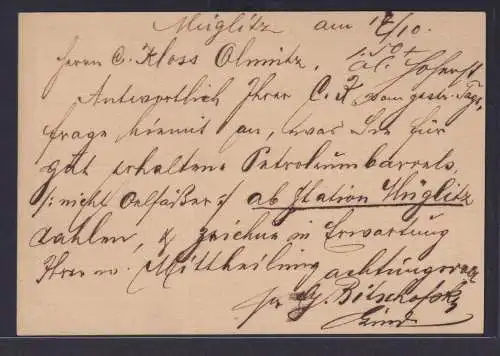 Müglitz am 12/10.
Herrn C. Kloss Olmütz.
Antwortlich Ihrer C. K vom gestr. Tage,
frage hiemit an, was Sie für
gut erhaltene Petroleumbarrels,
/: nicht Oelfässer :/ ab Station Müglitz
zahlen, & zeichne in Erwartung
Ihrer w. Mittheilung achtungsvoll